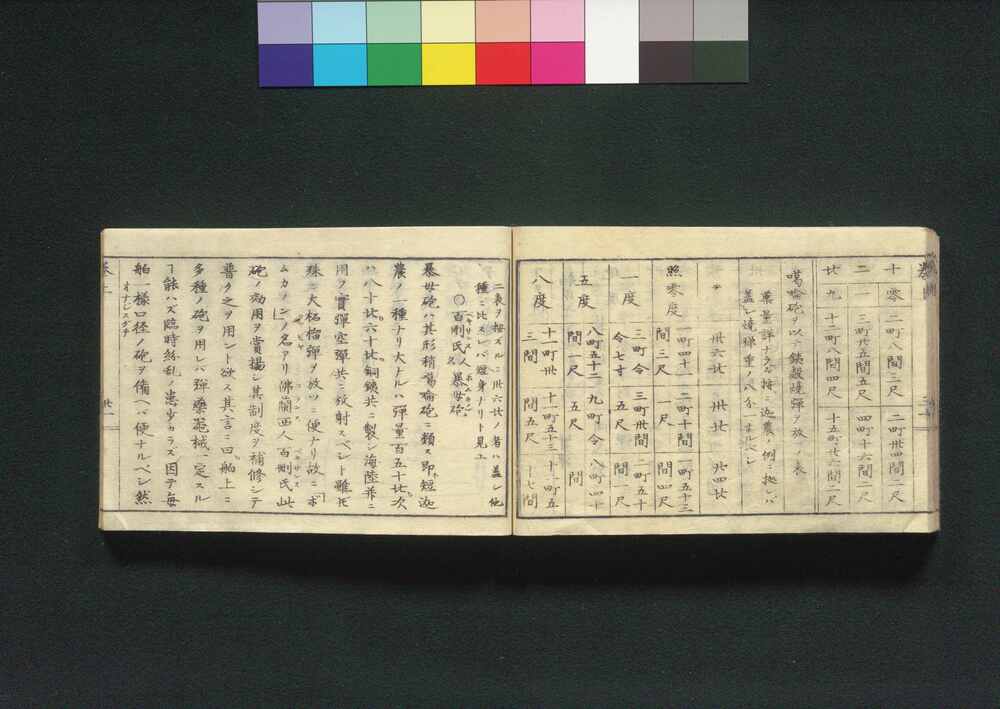 十零 二町八間三尺 二町卅四間二尺
二一 三町廿五間五尺 四町十六間二尺
廿九 十二町八間四尺 十五町廿六間二尺
噶喻砲ヲ以テ鉄殻煌弾ヲ放ノ表
藥量詳ナラズ接ニ迦農ノ例ニ拠レバ
蓋シ煌弾重ノ八分一ナルベシ
卅六比 卅比 廿四比
照零度 一町四十間三尺 二町十間一尺 一町五十三間四尺
一度 三町令令七寸 三町卅間五尺 二町五十間一尺
五度 八町五十二間一尺 九町令五尺 八町四十間
八度 十一町卅三間 十一町五十三間五尺 十一町五十七間
二表ヲ按ズルニ卅六比ノ者ハ蓋シ他
種ニ比スレバ短身ナリト見ユ
○百刪氏人 暴母砲
暴母砲ハ其形稍噶喻砲ニ類ス即チ短迦
農ノ一種ナリ大ナルハ弾量百五十比次
ハ八十比六十比銅鐵共ニ製シ海陸並ニ
用フ實弾空弾共ニ放射スベシト雖モ
殊ニ大柘榴弾ヲ放ツニ便ナリ故ニボ
ムカノンノ名アリ佛蘭西人百刪氏此
砲ノ効用ヲ賞揚シ其制度ヲ補修シテ
普ク之ヲ用ント欲ス其言ニ曰舶上ニ
多種ノ砲ヲ用レバ弾藥器械一定スル
ヿ能ハズ臨時紛乱ノ患少カラズ因テ毎
舶一様口径ノ砲ヲ備ヘバ便ナルベシ然